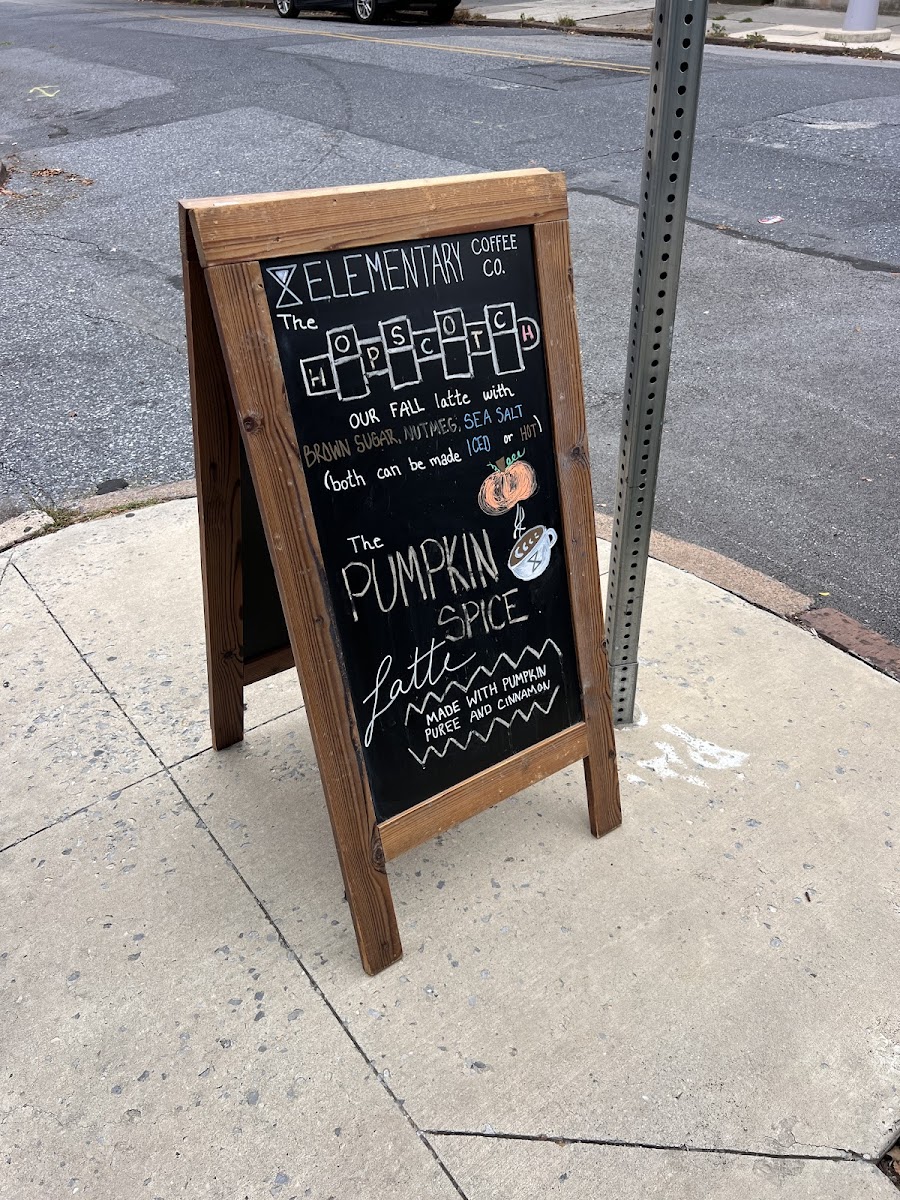 ELEMENTARY COFFEE CO.
The
HOPSCOTCH
OUR FALL latte with
BROWN SUGAR, NUTMEG, SEA SALT
(both can be made ICED or HOT)
The
PUMPKIN
SPICE
Latte
MADE WITH PUMPKIN
PUREE AND CINNAMON